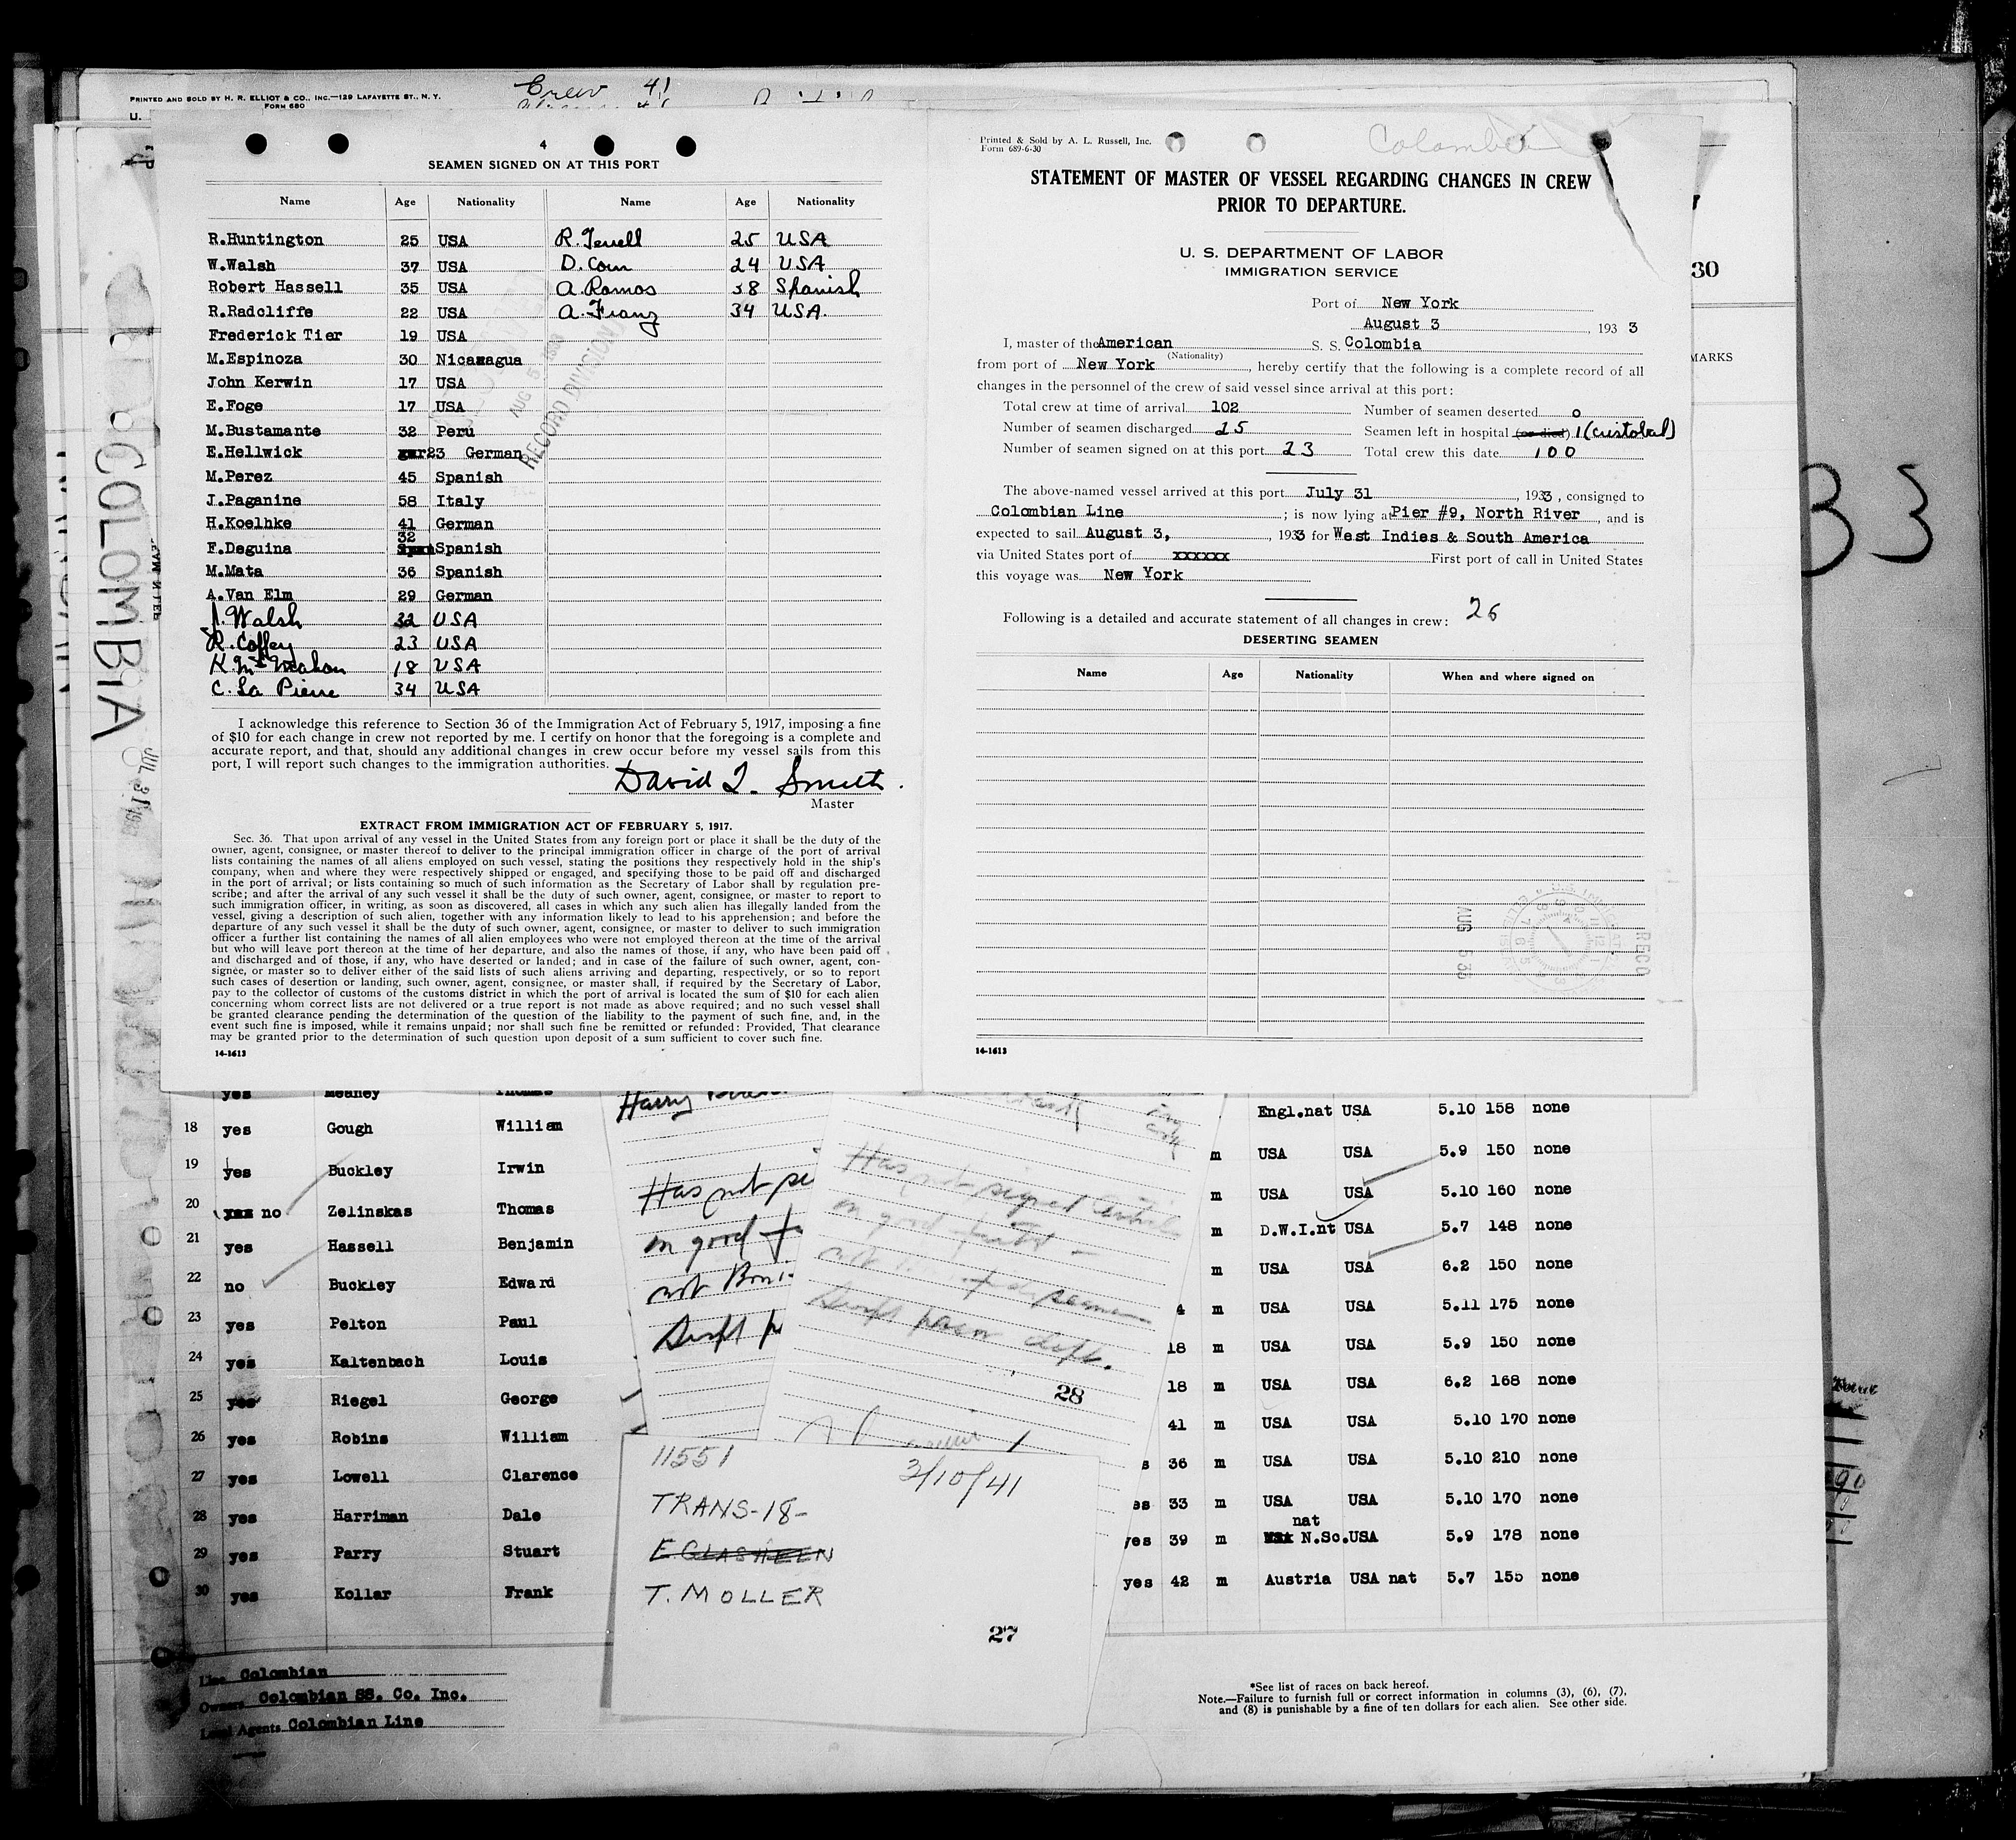 PRINTED AND SOLD BY H. R. ELLIOT & CO., INC.—129 LAFAYETTE ST., N. Y.
FORM 680
U.
Crew 41
4
SEAMEN SIGNED ON AT THIS PORT
Name Age Nationality Name Age Nationality
R.Huntington 25 USA R. Terrell 25 USA
W.Walsh 37 USA D. 24 USA
Robert Hassell 35 USA A. Ramos 38 Spanish
R.Radcliffe 22 USA A. Franz 34 USA.
Frederick Tier 19 USA
M.Espinoza 30 Nicaragua
John Kerwin 17 USA
E.Foge 17 USA
M.Bustamante 32 Peru
E.Hellwick 23 German
M.Perez 45 Spanish
J.Paganine 58 Italy
H.Koelhke 41 German
F.Deguina 32 Spanish
M.Mata 36 Spanish
A.Van Elm 29 German
J. Walsh 32 USA
R. Coffey 23 USA
K. McMahon 18 USA
C. La Pierre 34 USA
AUG 5
RECORD DIVISION
I acknowledge this reference to Section 36 of the Immigration Act of February 5, 1917, imposing a fine
of $10 for each change in crew not reported by me. I certify on honor that the foregoing is a complete and
accurate report, and that, should any additional changes in crew occur before my vessel sails from this
port, I will report such changes to the immigration authorities.
David T. Smith
Master
EXTRACT FROM IMMIGRATION ACT OF FEBRUARY 5, 1917.
Sec. 36. That upon arrival of any vessel in the United States from any foreign port or place it shall be the duty of the
owner, agent, consignee, or master thereof to deliver to the principal immigration officer in charge of the port of arrival
lists containing the names of all aliens employed on such vessel, stating the positions they respectively hold in the ship's
company, when and where they were respectively shipped or engaged, and specifying those to be paid off and discharged
in the port of arrival; or lists containing so much of such information as the Secretary of Labor shall by regulation pre-
scribe; and after the arrival of any such vessel it shall be the duty of such owner, agent, consignee, or master to report to
such immigration officer, in writing, as soon as discovered, all cases in which any such alien has illegally landed from the
vessel, giving a description of such alien, together with any information likely to lead to his apprehension; and before the
departure of any such vessel it shall be the duty of such owner, agent, consignee, or master to deliver to such immigration
officer a further list containing the names of all alien employees who were not employed thereon at the time of the arrival
but who will leave port thereon at the time of her departure, and also the names of those, if any, who have been paid off
and discharged and of those, if any, who have deserted or landed; and in case of the failure of such owner, agent, con-
signee, or master so to deliver either of the said lists of such aliens arriving and departing, respectively, or so to report
such cases of desertion or landing, such owner, agent, consignee, or master shall, if required by the Secretary of Labor,
pay to the collector of customs of the customs district in which the port of arrival is located the sum of $10 for each alien
concerning whom correct lists are not delivered or a true report is not made as above required; and no such vessel shall
be granted clearance pending the determination of the question of the liability to the payment of such fine, and, in the
event such fine is imposed, while it remains unpaid; nor shall such fine be remitted or refunded: Provided, That clearance
may be granted prior to the determination of such question upon deposit of a sum sufficient to cover such fine.
14-1613
Printed & Sold by A. L. Russell, Inc.
Form 689-6-30
Colombia
STATEMENT OF MASTER OF VESSEL REGARDING CHANGES IN CREW
PRIOR TO DEPARTURE.
U. S. DEPARTMENT OF LABOR
IMMIGRATION SERVICE
Port of New York
August 3, 1933
I, master of the American S. S. Colombia
(Nationality)
from port of New York, hereby certify that the following is a complete record of all
changes in the personnel of the crew of said vessel since arrival at this port:
Total crew at time of arrival 102 Number of seamen deserted 0
Number of seamen discharged 25 Seamen left in hospital (or died) 1 (Cristobal)
Number of seamen signed on at this port 23 Total crew this date 100
The above-named vessel arrived at this port July 31, 1933, consigned to
Colombian Line; is now lying at Pier #9, North River, and is
expected to sail August 3, 1933 for West Indies & South America
via United States port of xxxxxx First port of call in United States
this voyage was New York
Following is a detailed and accurate statement of all changes in crew: 26
DESERTING SEAMEN
Name Age Nationality When and where signed on
AUG 5
RECD
14-1613
30
MARKS
33
COLOMBIA
JUL 31
yes Meaney Thomas Engl.nat USA 5.10 158 none
18 yes Gough William m USA USA 5.9 150 none
19 yes Buckley Irwin m USA USA 5.10 160 none
20 no Zelinskas Thomas m D.W.I.nt USA 5.7 148 none
21 yes Hassell Benjamin m USA USA 6.2 150 none
22 no Buckley Edward 4 m USA USA 5.11 175 none
23 yes Pelton Paul 18 m USA USA 5.9 150 none
24 yes Kaltenbach Louis 18 m USA USA 6.2 168 none
25 yes Riegel George 41 m USA USA 5.10 170 none
26 yes Robins William s 36 m USA USA 5.10 210 none
27 yes Lowell Clarence es 33 m USA USA 5.10 170 none
28 yes Harriman Dale yes 39 m nat N.Sc. USA 5.9 178 none
29 yes Parry Stuart yes 42 m Austria USA nat 5.7 155 none
30 yes Kollar Frank
Harry
Has not si
on good f
not
Has not signed
on good
not
28
11551
3/10/41
TRANS-18-
E GLASHEEN
T. MOLLER
27
Line Colombian
Owners Colombian SS. Co. Inc.
Local Agents Colombian Line
*See list of races on back hereof.
Note.—Failure to furnish full or correct information in columns (3), (6), (7),
and (8) is punishable by a fine of ten dollars for each alien. See other side.